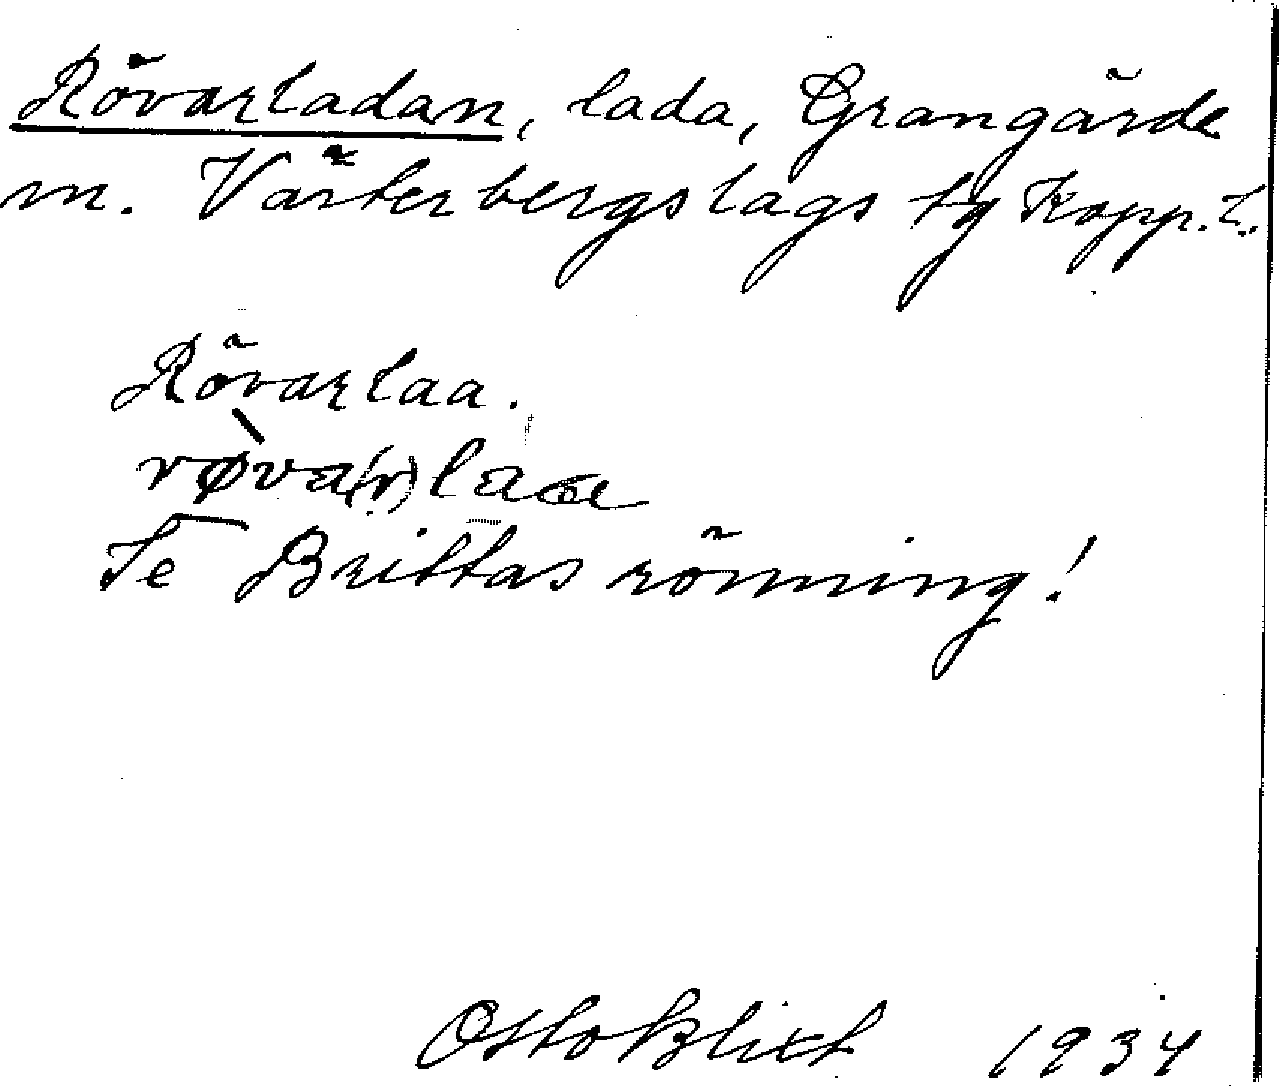 Rövarladan, lada, Grangärde
m. Västerbergslags tg Kopp. L.
Rövarlaa.
røva(r)laa
Se Brittas rönning!
Otto Blixt 1934